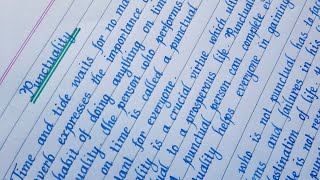 Punctuality
Time and tide waits for no ma
verb expresses the importance
habit of doing anything on tim
uality. The person who performs
on time is called a punctual
lant for everyone.
ality is a crucial virtue which
ial to a prosperous life. Punctual
punctual person can complete
uality helps everyone in gaining
who is not punctual has to
ms and failures in his
destination of life is
ife is not